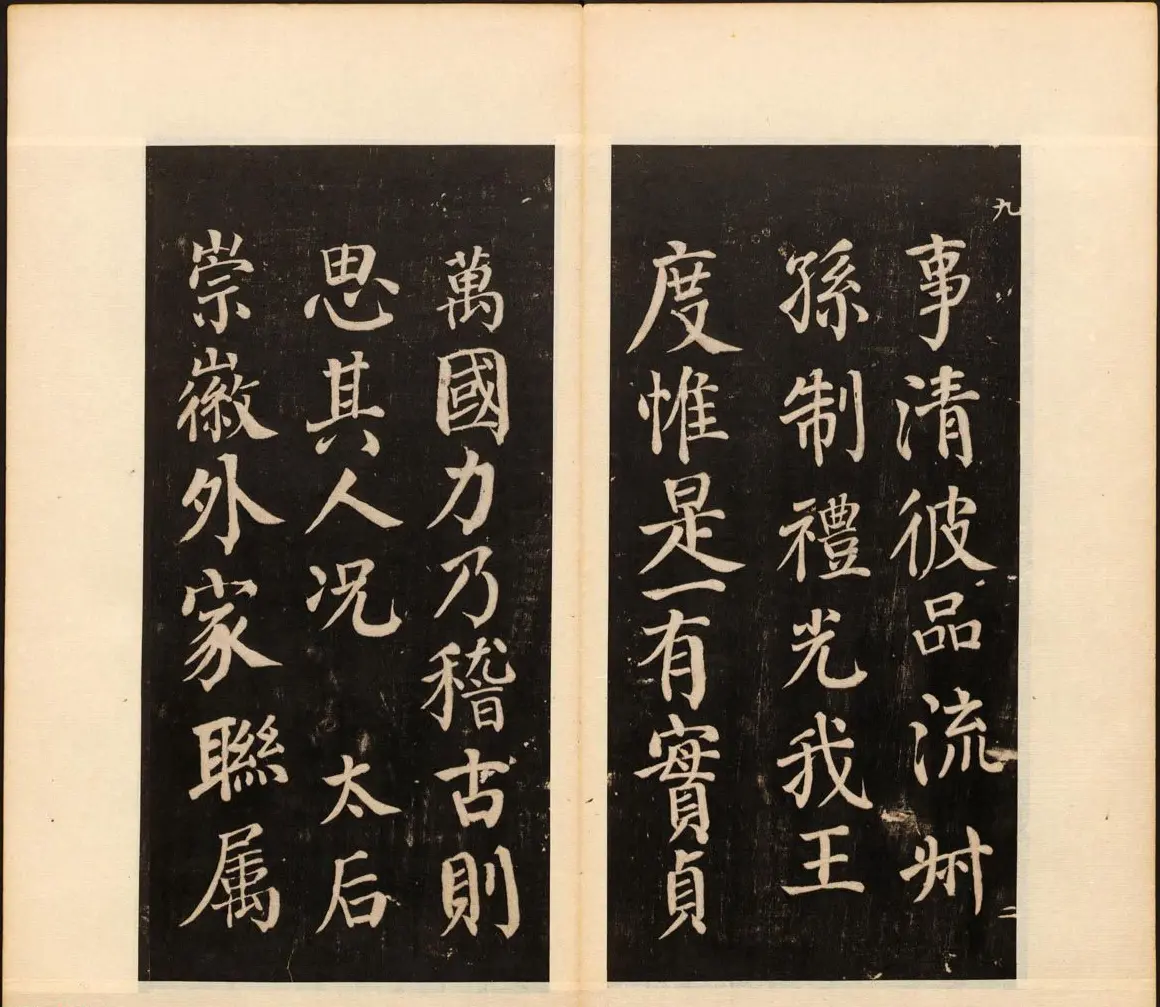 九
事清彼品流叔
孫制禮光我王
度惟是一有實貞
萬國力乃稽古則
思其人况 太后
崇徽外家聯属